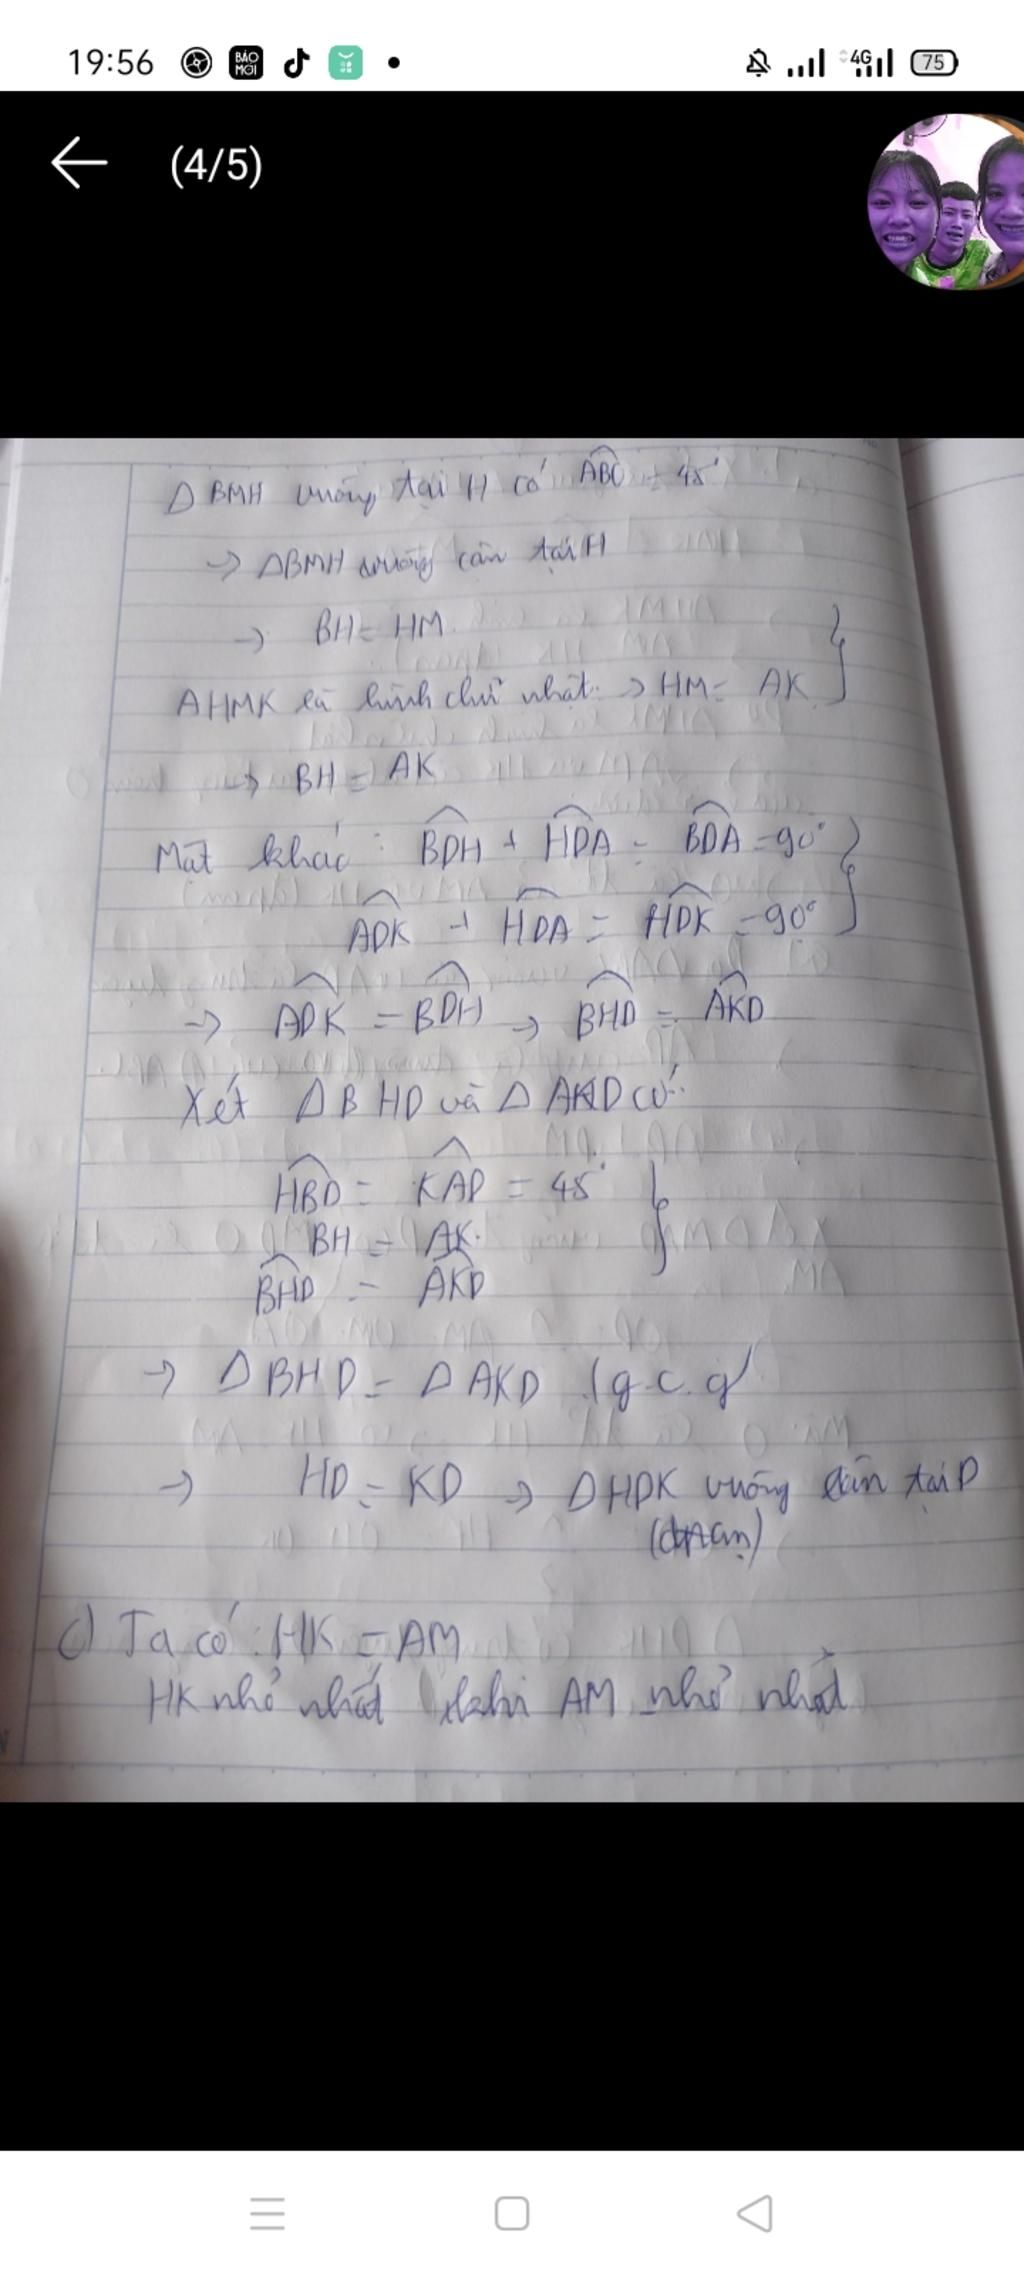 19:56
BÁO MỚI
4G
75
(4/5)
Δ BMH vuông tại H có ABC = 45°
→ ΔBMH vuông cân tại H
→ BH = HM
AHMK là hình chữ nhật → HM = AK
→ BH = AK
Mặt khác : BDH + HDA = BDA = 90°
ADK + HDA = HDK = 90°
→ ADK = BDH → BHD = AKD
Xét Δ BHD và Δ AKD có:
HBD = KAD = 45°
BH = AK
BHD = AKD
→ Δ BHD = Δ AKD (g.c.g)
→ HD = KD → Δ HDK vuông cân tại D
c) Ta có : HK = AM
HK nhỏ nhất khi AM nhỏ nhất